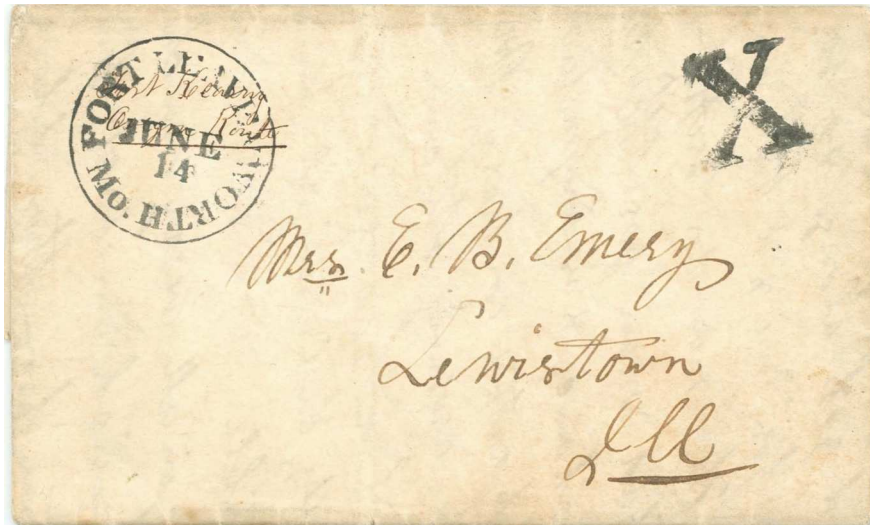 FORT LEAVENWORTH Mo.
Fort Kearny
Oregon Route
JUNE
14
X
Mrs. E. B. Emery
Lewistown
Ill